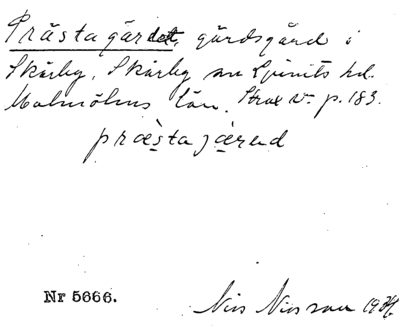 Prästagärdet, gärdsgärd i
Skårby, Skårby sn Ljunits hd.
Malmöhus län. Strax v. p. 183.
præ̀stajæ̀rend
Nr 5666.
Nils Nilsson 1934.